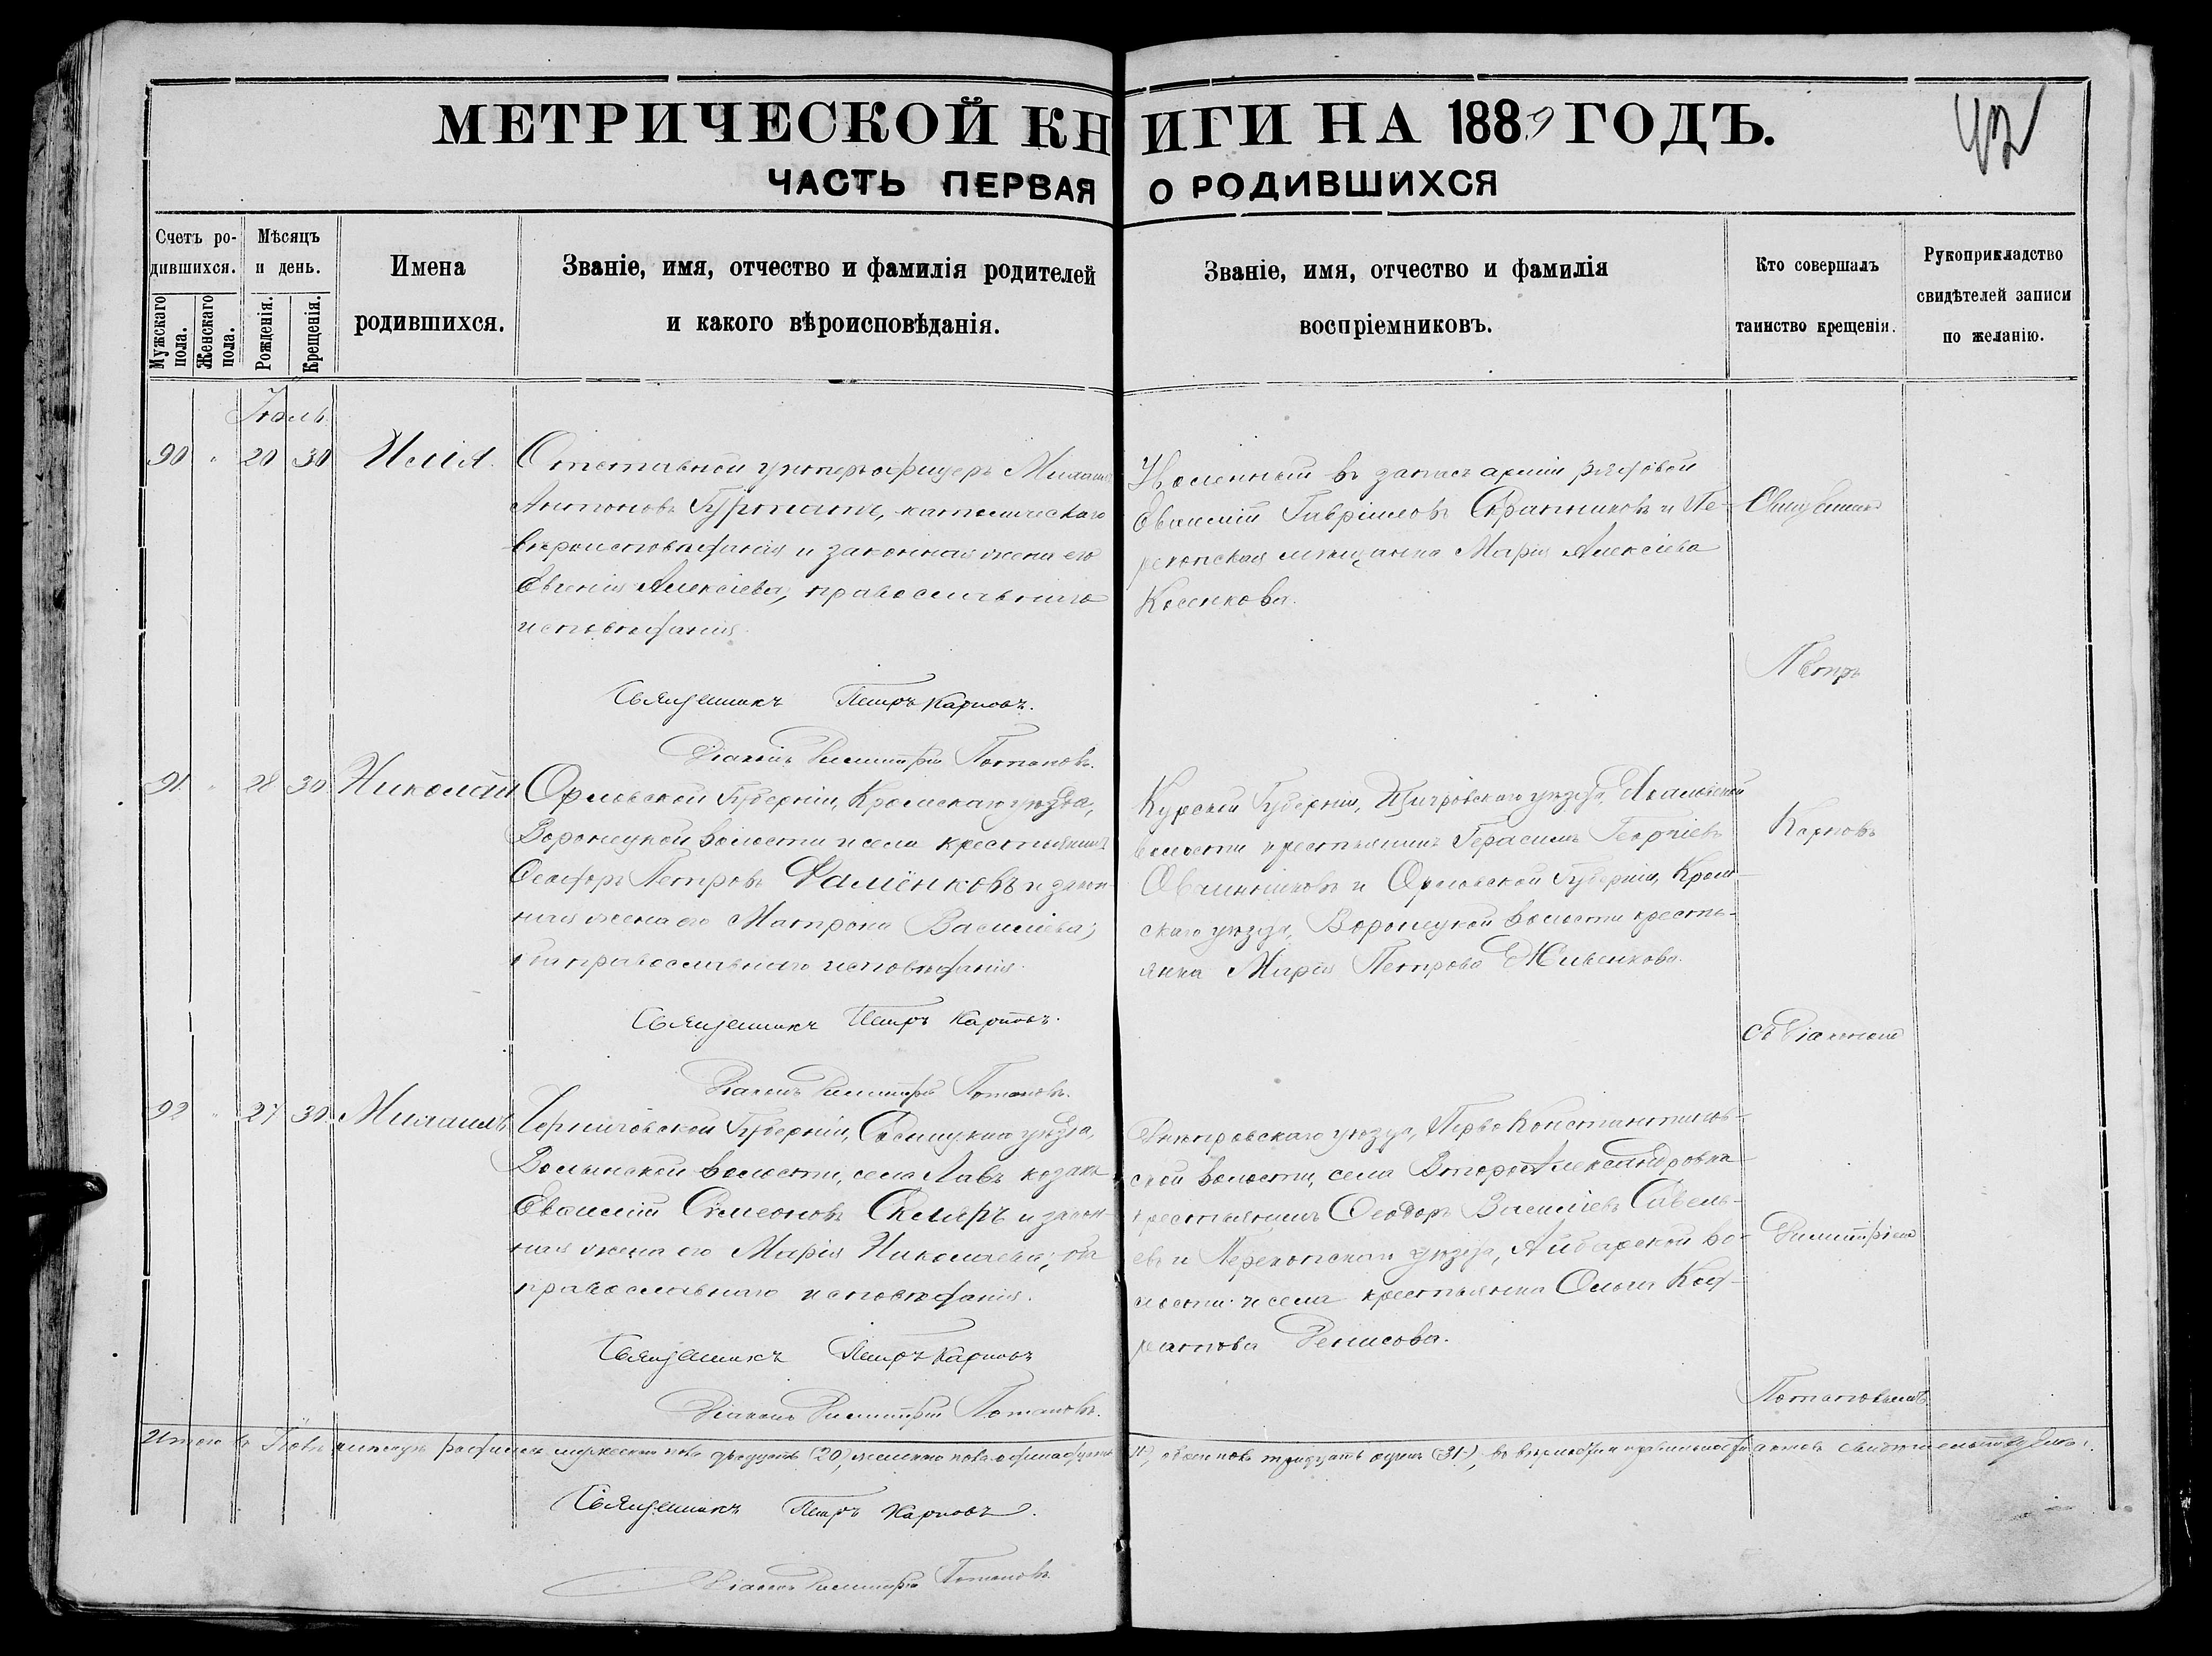 МЕТРИЧЕСКОЙ КНИГИ НА 1889 ГОДЪ.
42
ЧАСТЬ ПЕРВАЯ О РОДИВШИХСЯ
Счетъ ро-
дившихся.
Мужскаго
пола.
Женскаго
пола.
Мѣсяцъ
и день.
Рожденія.
Крещенія.
Имена
родившихся.
Званіе, имя, отчество и фамилія родителей
и какого вѣроисповѣданія.
Званіе, имя, отчество и фамилія
воспріемниковъ.
Кто совершалъ
таинство крещенія.
Рукоприкладство
свидѣтелей записи
по желанію.
Іюль
90 " 20 30 Илія.
Отставной унтеръ-офицеръ Михаилъ
Антоновъ католическаго
вѣроисповѣданія и законная жена его
Евгенія Алексіева, православнаго
исповѣданія.
Священникъ Петръ Карповъ.
Діаконъ Димитрій Потаповъ.
Уволенный въ запасъ арміи рядовой
Евѳимій Гавріиловъ Скрапниковъ и Пе-
рекопская мѣщанка Марія Алексіева
Косенкова.
91 " 28 30 Николай
Орловской Губерніи, Кромскаго уѣзда,
Воронецкой волости и села крестьянинъ
Ѳеодоръ Петровъ Фалёнковъ и закон-
ная жена его Матрона Василіева;
оба православнаго исповѣданія.
Священникъ Петръ Карповъ.
Діаконъ Димитрій Потаповъ.
Курской Губерніи, Щигровскаго уѣзда,
волости крестьянинъ Герасимъ Георгіевъ
Овсянниковъ и Орловской Губерніи, Кром-
скаго уѣзда, Воронецкой волости кресть-
янка Марія Петрова Живенкова.
92 " 27 30 Михаилъ
Черниговской Губерніи, Сосницкаго уѣзда,
Волынской волости, села Лавъ козакъ
Евѳимій Симеоновъ Скляръ и закон-
ная жена его Марія Николаева; оба
православнаго исповѣданія.
Священникъ Петръ Карповъ
Діаконъ Димитрій Потаповъ.
Днѣпровскаго уѣзда, Перво Константинов-
ской волости, села Второ Александровка
крестьянинъ Ѳеодоръ Василіевъ Савель-
евъ и Перекопскаго уѣзда, Айбарской во-
лости и села крестьянка Ольга Конд-
ратова Денисова.
Священникъ
Петръ
Карповъ
съ Діакономъ
Димитріемъ
Потаповымъ.
Итого въ Іюлѣ мѣсяцѣ родилось мужескаго пола двадцать (20), женскаго пола одинадцать (11), обоего пола тридцать одинъ (31), въ вѣрности
Священникъ Петръ Карповъ.
Діаконъ Димитрій Потаповъ.